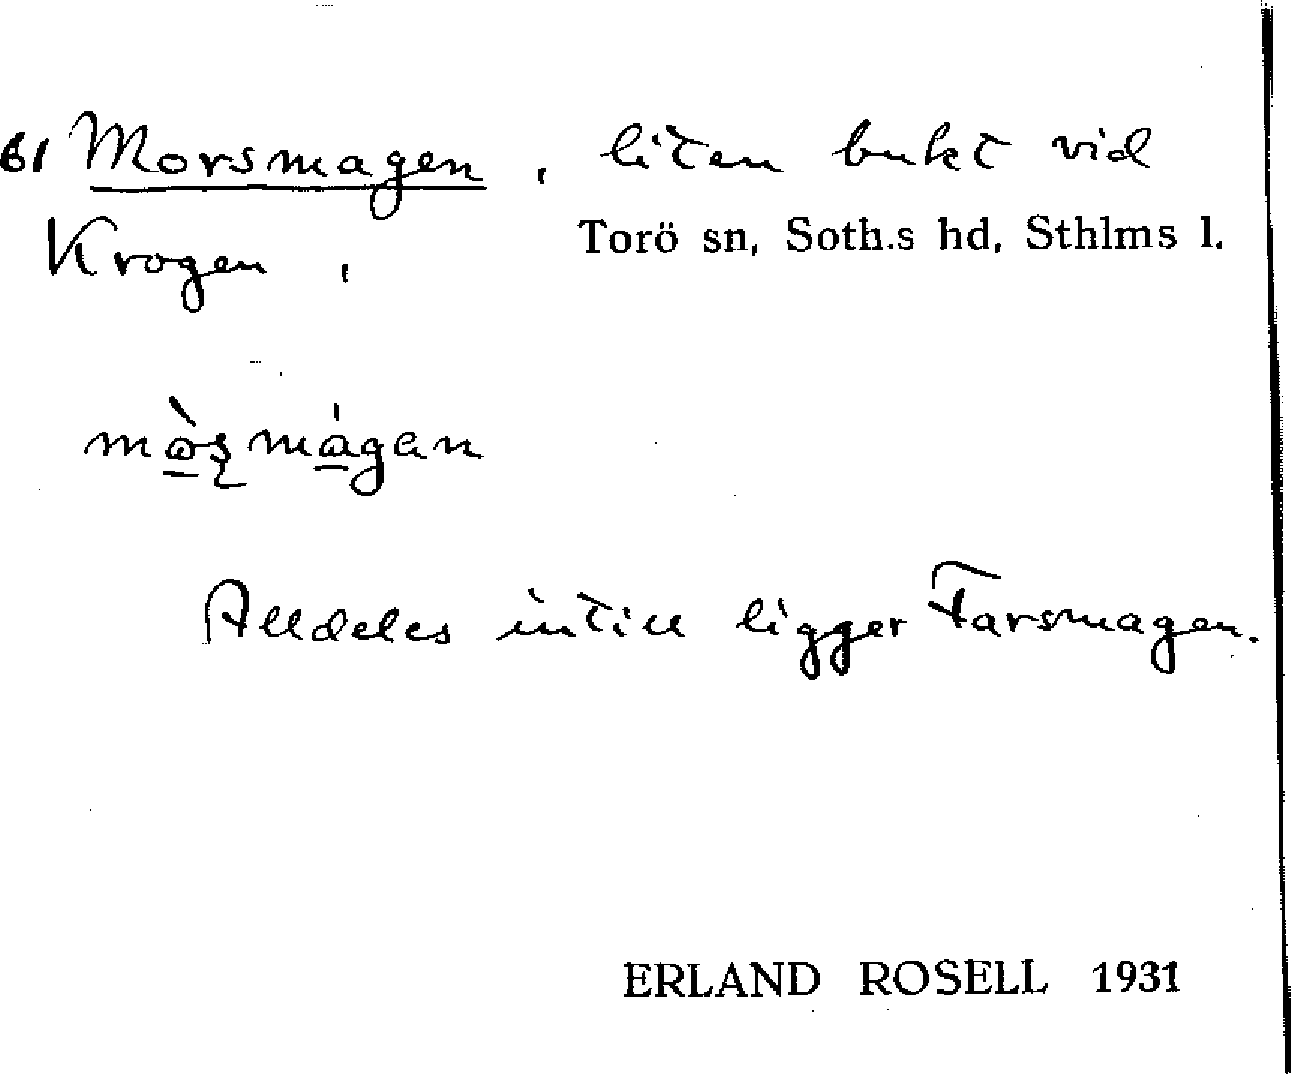 61 Morsmagen, liten bukt vid
Krogen, Torö sn, Soth.s hd, Sthlms l.
mòʂmágan
Alldeles intill ligger Farsmagen.
ERLAND ROSELL 1931